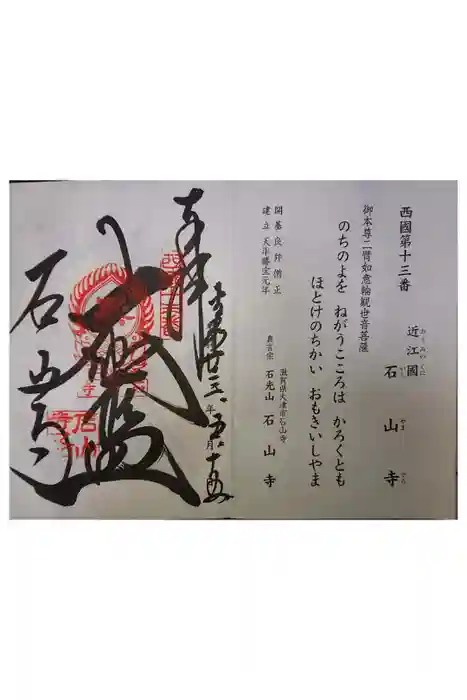 西國第十三番
近江國 石山寺
おうみのくに いし やま でら
御本尊二臂如意輪観世音菩薩
のちのよを ねがうこころは かろくとも
ほとけのちかい おもきいしやま
開基良弁僧正
建立 天平勝宝元年
滋賀県大津市石山寺
真言宗 石光山 石山寺
奉拝
平成廿三年五月十五日
大伽藍
石山寺
石山寺